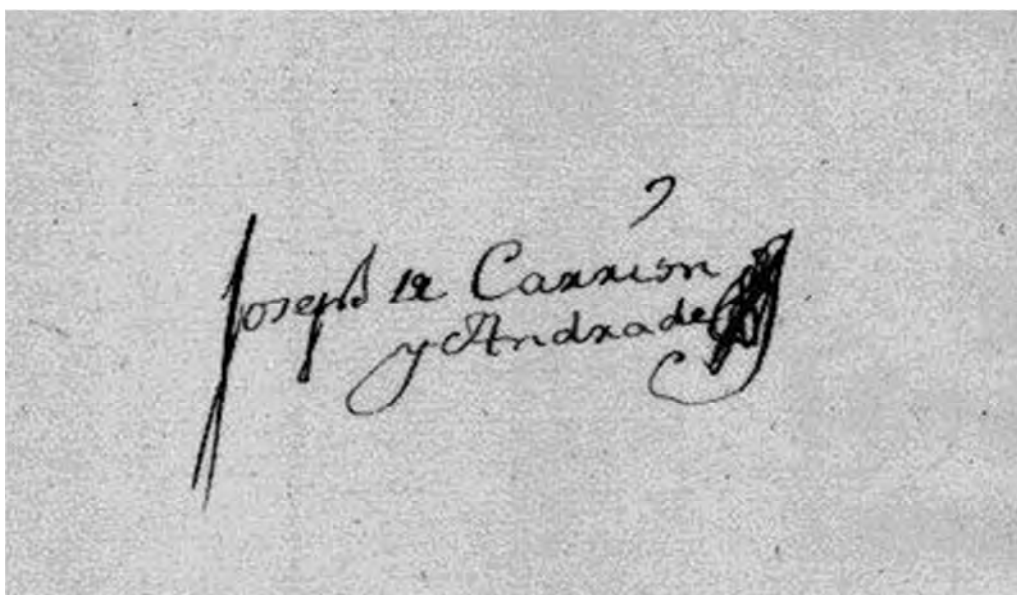 Joseph de Carrión
y Andrade